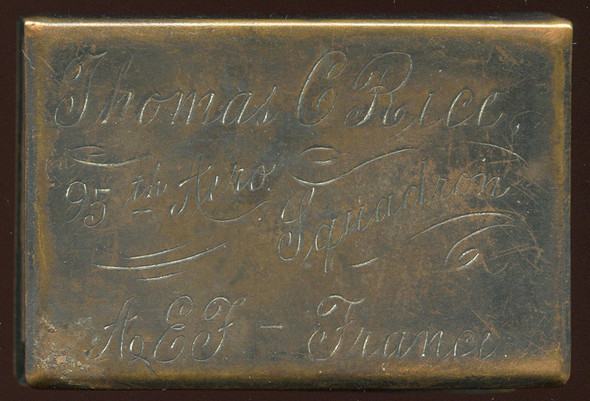 Thomas C Rice
95th Aero Squadron
AEF - France